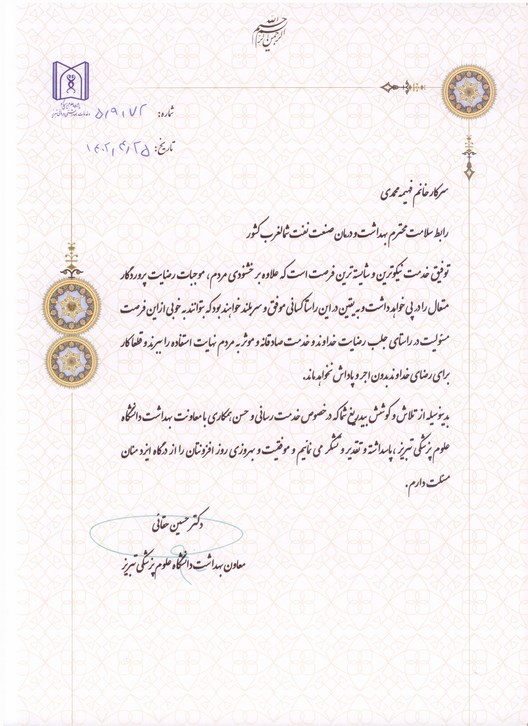 بسم الله الرحمن الرحیم
شماره: ۵/۹۱۷۲
تاریخ: ۱۴۰۲/۴/۲۵
سرکار خانم فهیمه محمدی
رابط سلامت محترم بهداشت و درمان صنعت نفت شمالغرب کشور
توفیق خدمت نیکوترین و شایسته ترین فرصت است که علاوه بر خشنودی مردم، موجبات رضایت پروردگار
متعال را در پی خواهد داشت و به یقین در این راستا کسانی موفق و سربلند خواهند بود که بتوانند به خوبی از این فرصت
مسئولیت در راستای جلب رضایت خداوند و خدمت صادقانه و موثر به مردم نهایت استفاده را ببرند و قطعا کار
برای رضای خداوند بدون اجر و پاداش نخواهد ماند.
بدینوسیله از تلاش و کوشش بیدریغ شما که در خصوص خدمت رسانی و حسن همکاری با معاونت بهداشت دانشگاه
علوم پزشکی تبریز، پاسداشته و تقدیر و تشکر می نمائیم و موفقیت و بهروزی روز افزونتان را از درگاه ایزد منان
مسئلت دارم.
دکتر حسین حقانی
معاون بهداشت دانشگاه علوم پزشکی تبریز